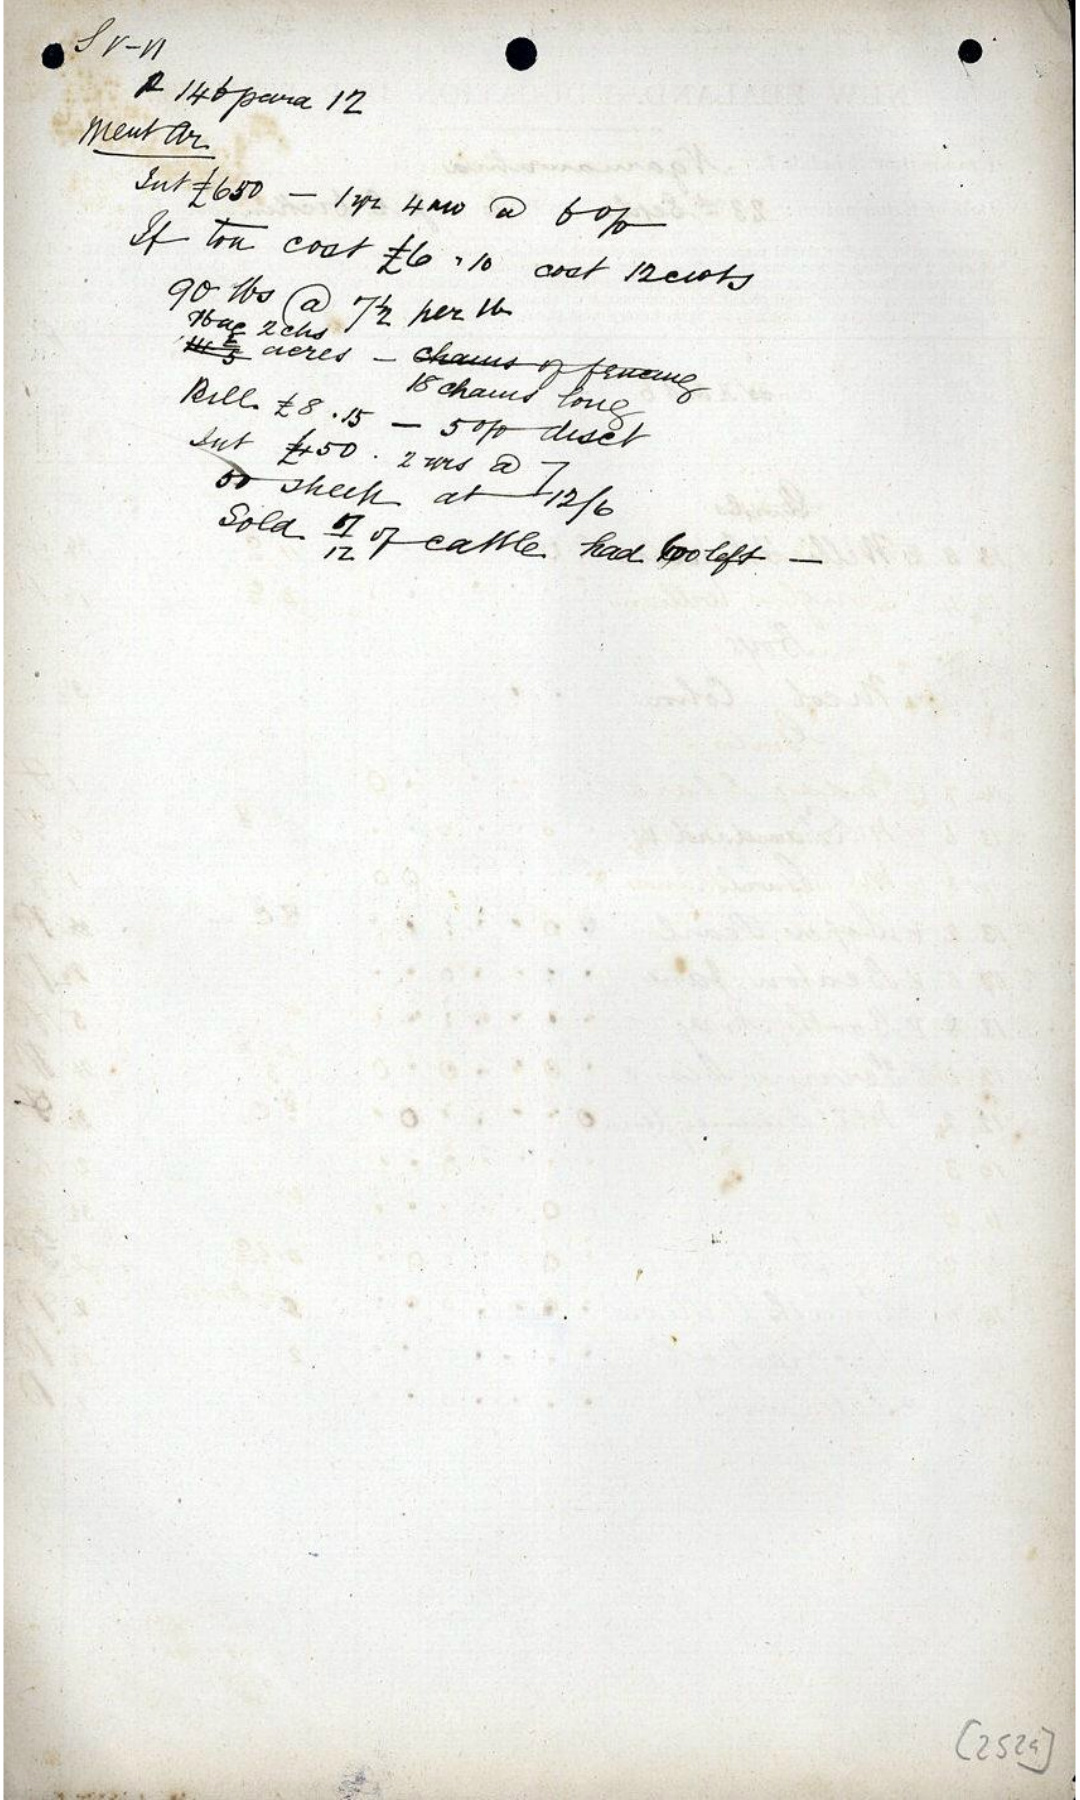 S V-VI
R 146 para 12
Ment Ar.
Int £650 — 1 yr 4 mo @ 6 o/o
If ton cost £6.10 cost 12 cwts
90 lbs @ 7½ per lb
2 chs
acres — chains of fencing
18 chains long
Bill £8.15 — 5 o/o disct
Int £450. 2 yrs @ 7
50 sheep at 12/6
Sold 7/12 of cattle had 60 left —
[252a]